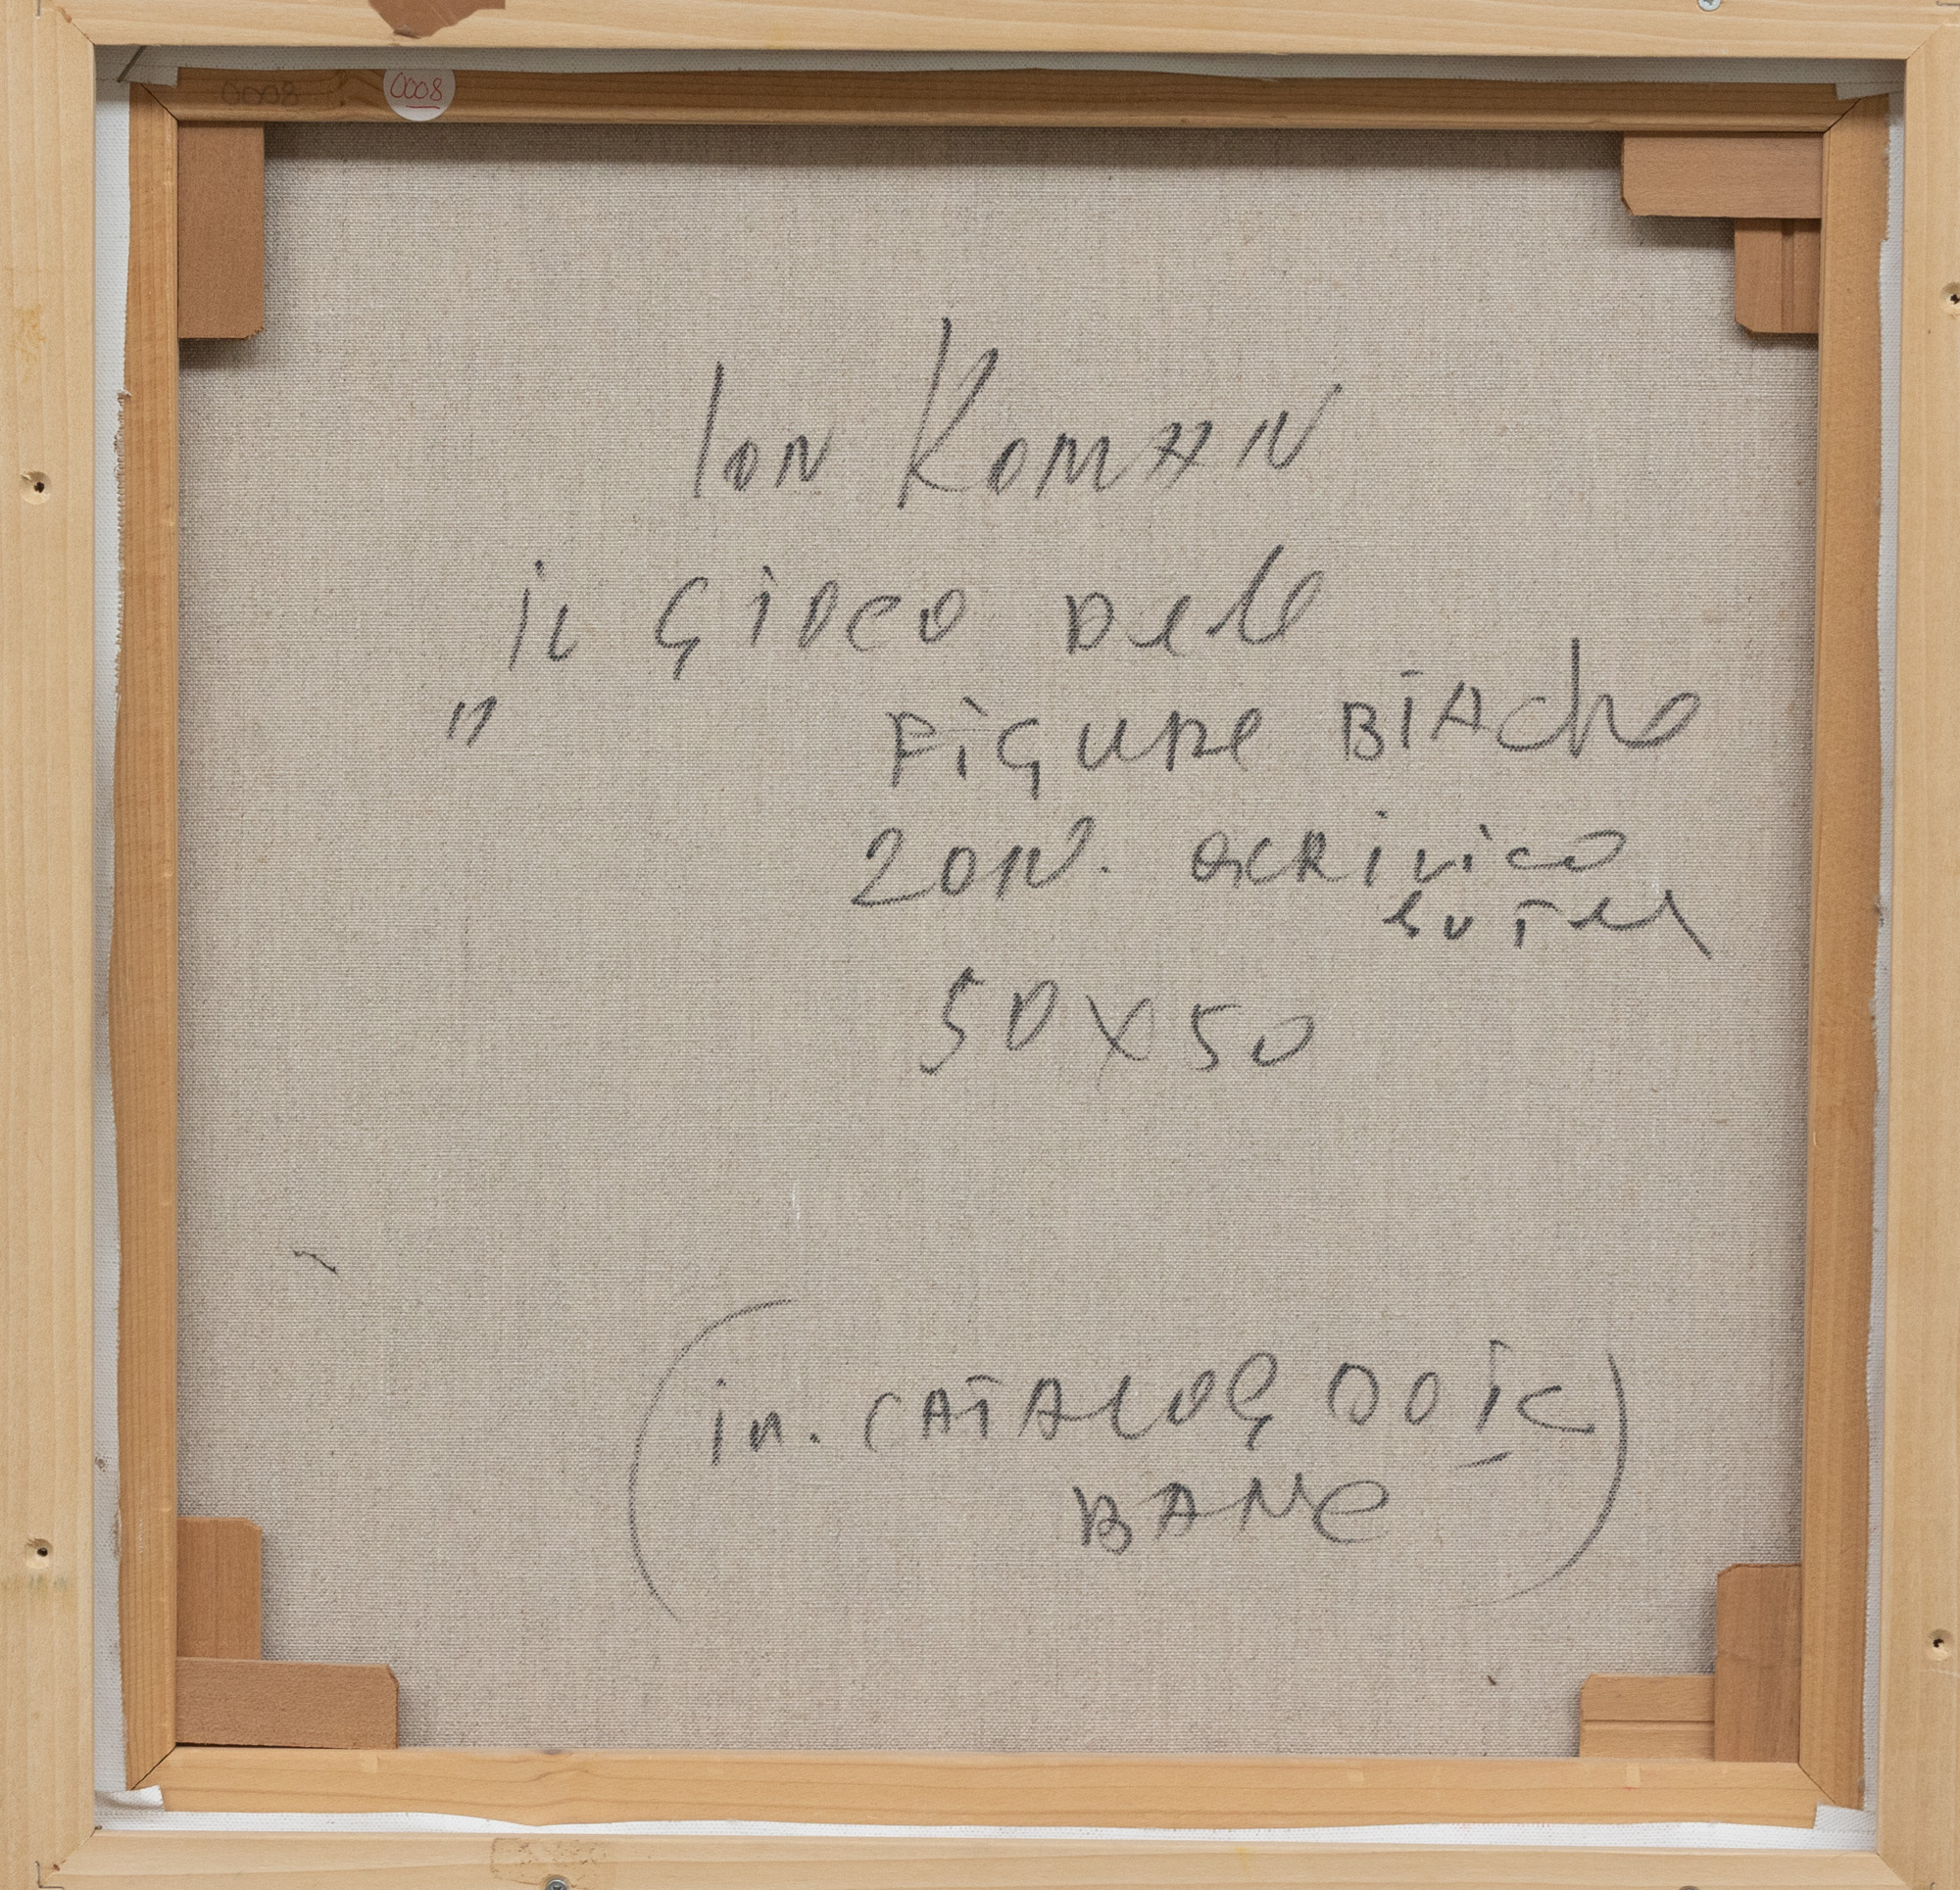 0008 0008
Ion Roman
il Gioco Delle
" Figure BiAche
2010. acrilico
su Tela
50X50
(in. CATALOG DOiC
BANC)